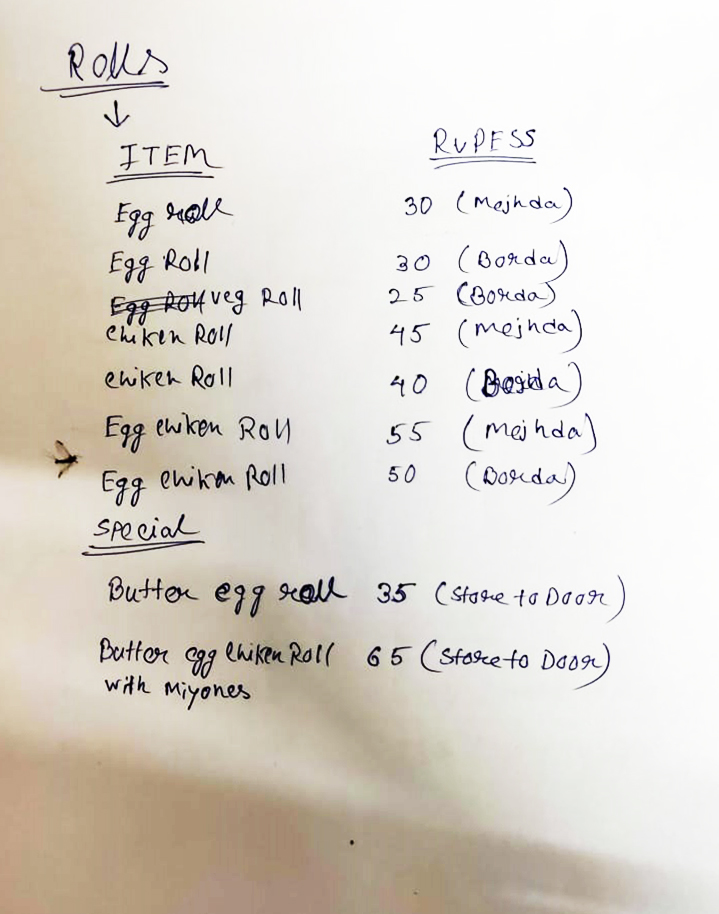 Rolls
ITEM RUPESS
Egg roll 30 (Mejhda)
Egg Roll 30 (Borda)
veg Roll 25 (Borda)
chiken Roll 45 (Mejhda)
chiken Roll 40 (Borda)
Egg chiken Roll 55 (Mejhda)
Egg chiken Roll 50 (Borda)
special
Butter egg roll 35 (Store to Door)
Butter egg chiken Roll 65 (Store to Door)
with Miyones